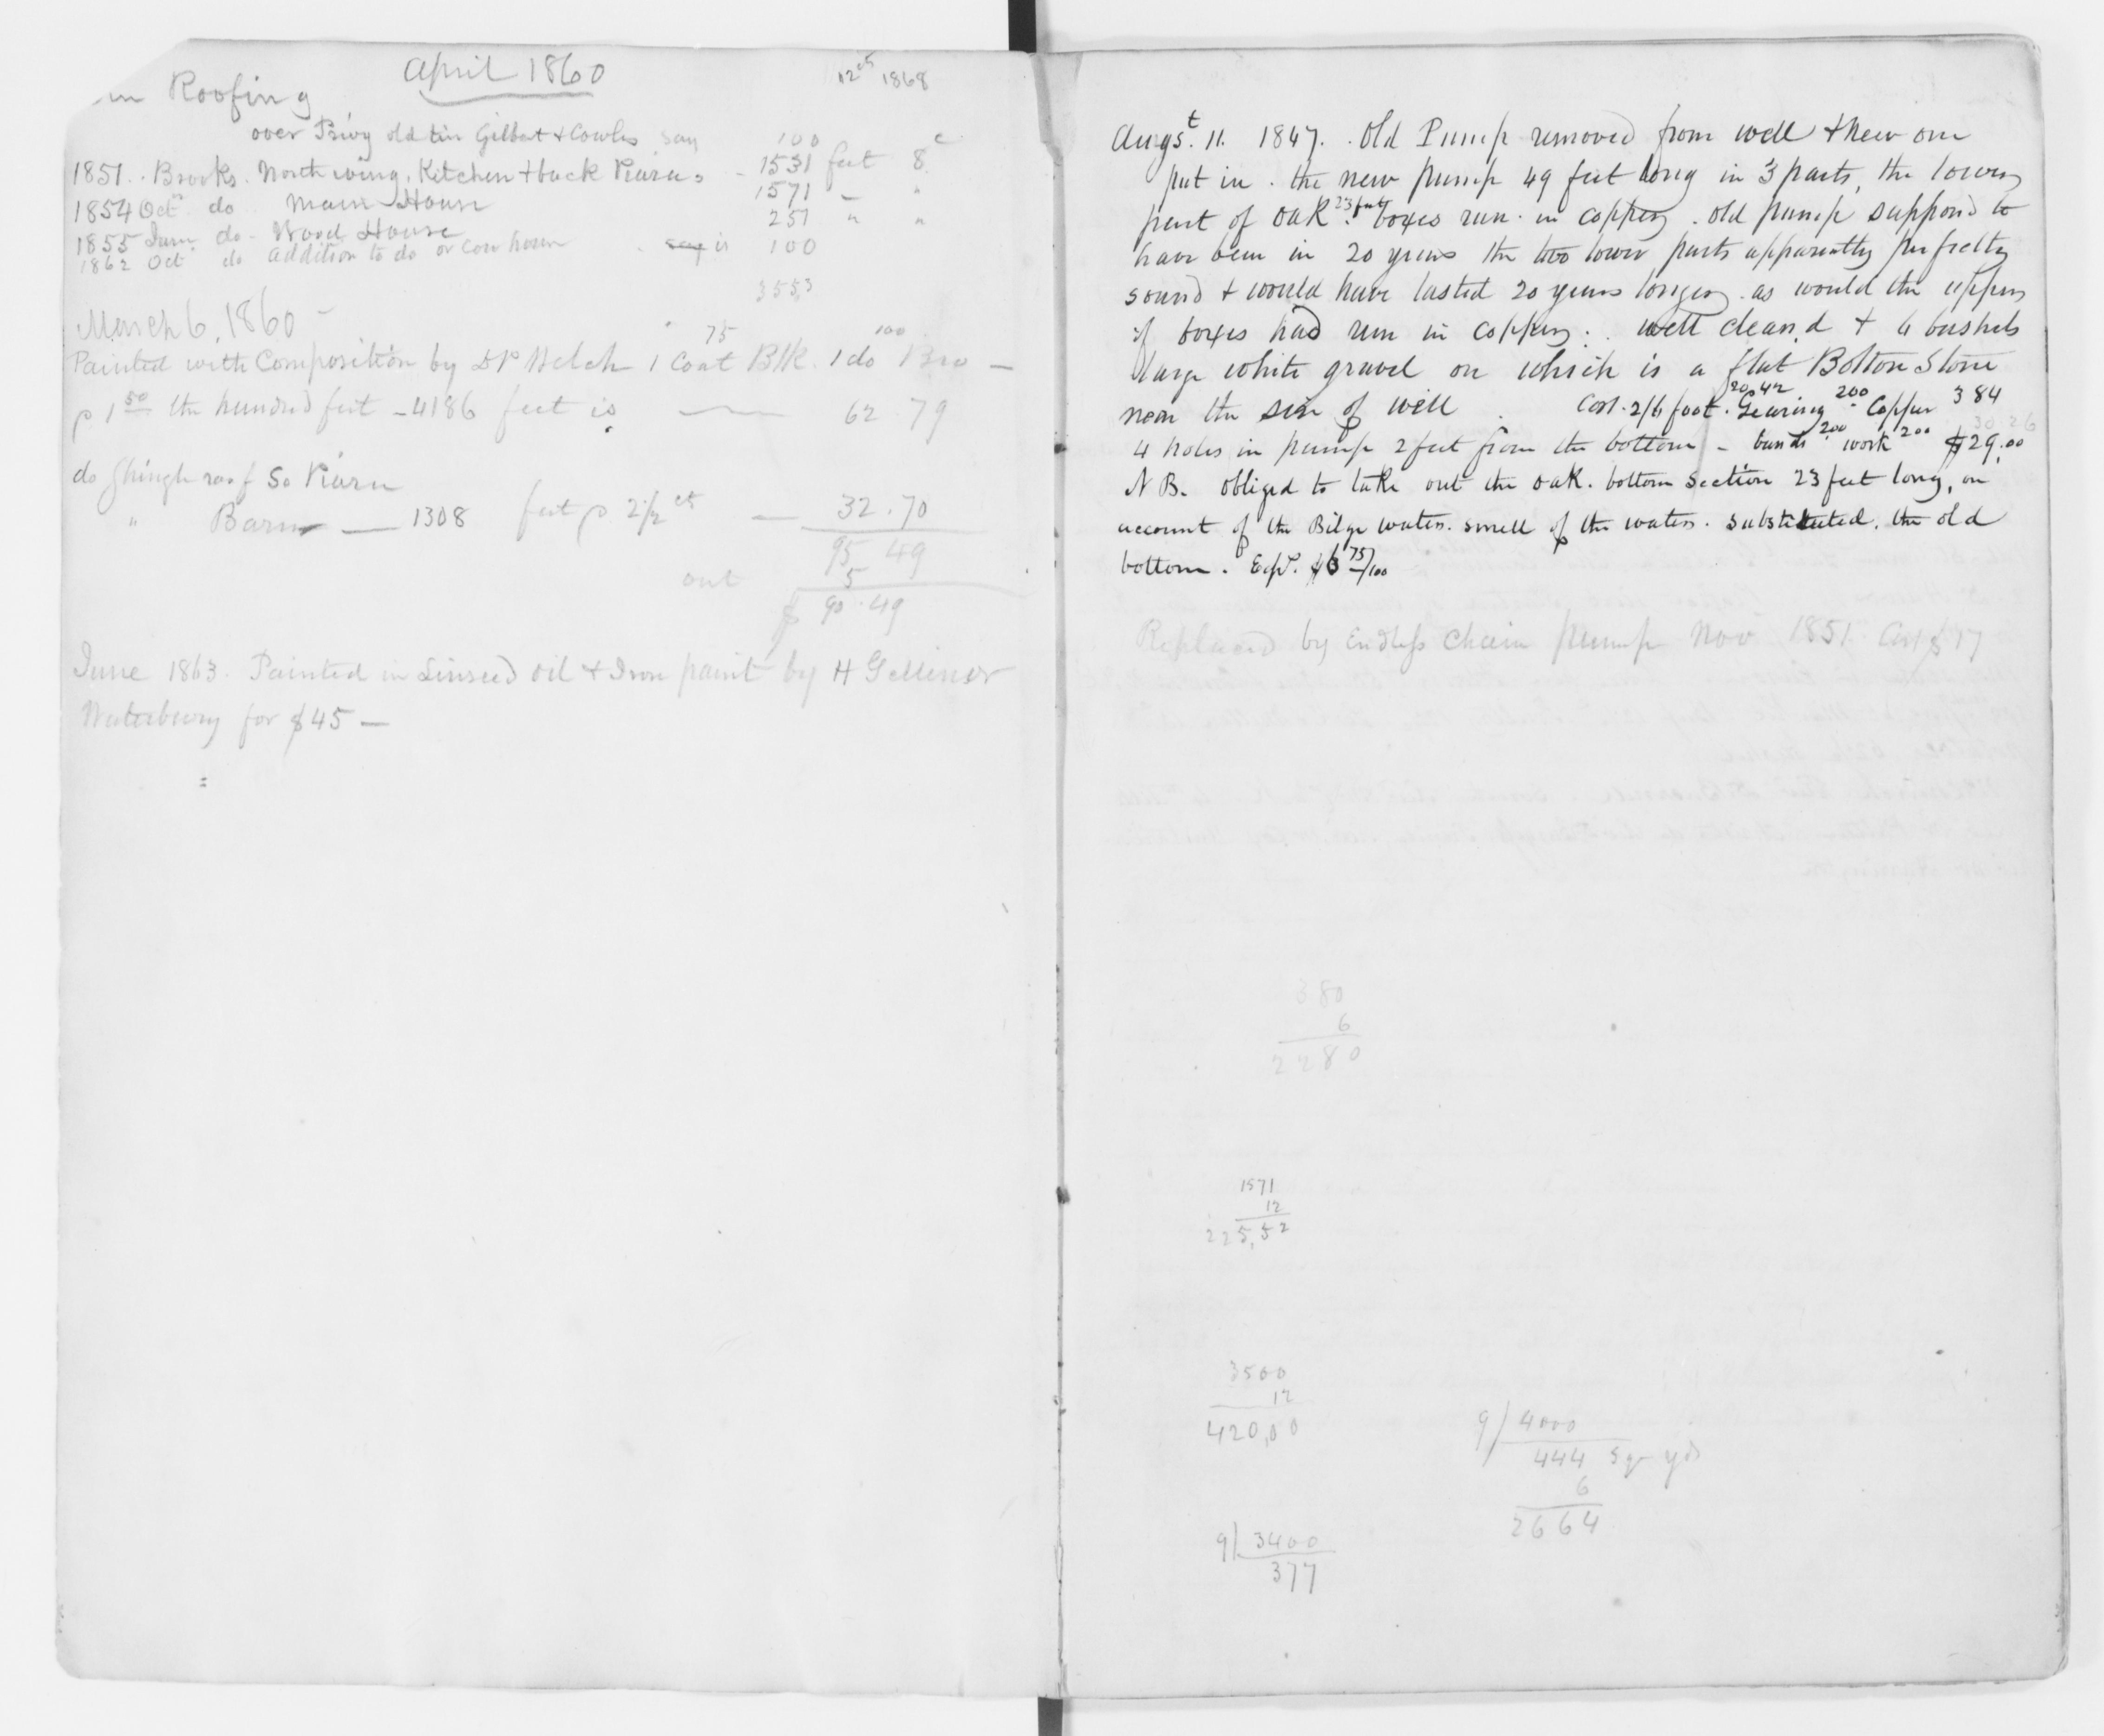 April 1860
12cts 1868
in Roofing
over Privy old tin Gilbert & Cowles say 100
1851. . Brooks. North wing, Kitchen & back Piaza - 1531 feet 8c
1854 Oct do Main House 1571 - "
1855 June do - Wood House 251 " "
1862 Oct do addition to do or cow house . say is 100
3553
March 6, 1860 -
75 100
Painted with Composition by Welch 1 Coat Blk. 1 do Bro -
p 1 50 the hundred feet - 4186 feet is 62 79
do Shingle roof So Piaza
" Barn — 1308 feet p 2 1/2 ct — 32.70
95 49
out 5
$ 90.49
June 1863. Painted in Linseed oil & Iron paint by H
Waterbury for $45 —
=
Augst. 11. 1847. . Old Pump removed from well & new one
put in . the new pump 49 feet long in 3 parts, the lower
part of oak 23 feet. boxes run in copper . old pump supposed to
have been in 20 years the two lower parts apparently perfectly
sound & would have lasted 20 years longer . as would the upper
if boxes had run in copper: . well cleand & 6 bushels
large white gravel on which is a flat Bottom Stone
near the size of well . Cost. 2/6 foot. 20.42 Gearing 200 Copper 3 84
30 26
4 holes in pump 2 feet from the bottom - bands 200 work 200 $29.00
N B. obliged to take out the oak. bottom section 23 feet long, on
account of the Bilge water. smell of the water. substituted, the old
bottom. Exp. $6 75/100
Replaced by Endless Chain pump Nov 1851. Cost $17
380
6
2280
1571
12
225,52
3500
12
420,00
9/ 4000
444 Sq yds
6
2664
9/ 3400
377